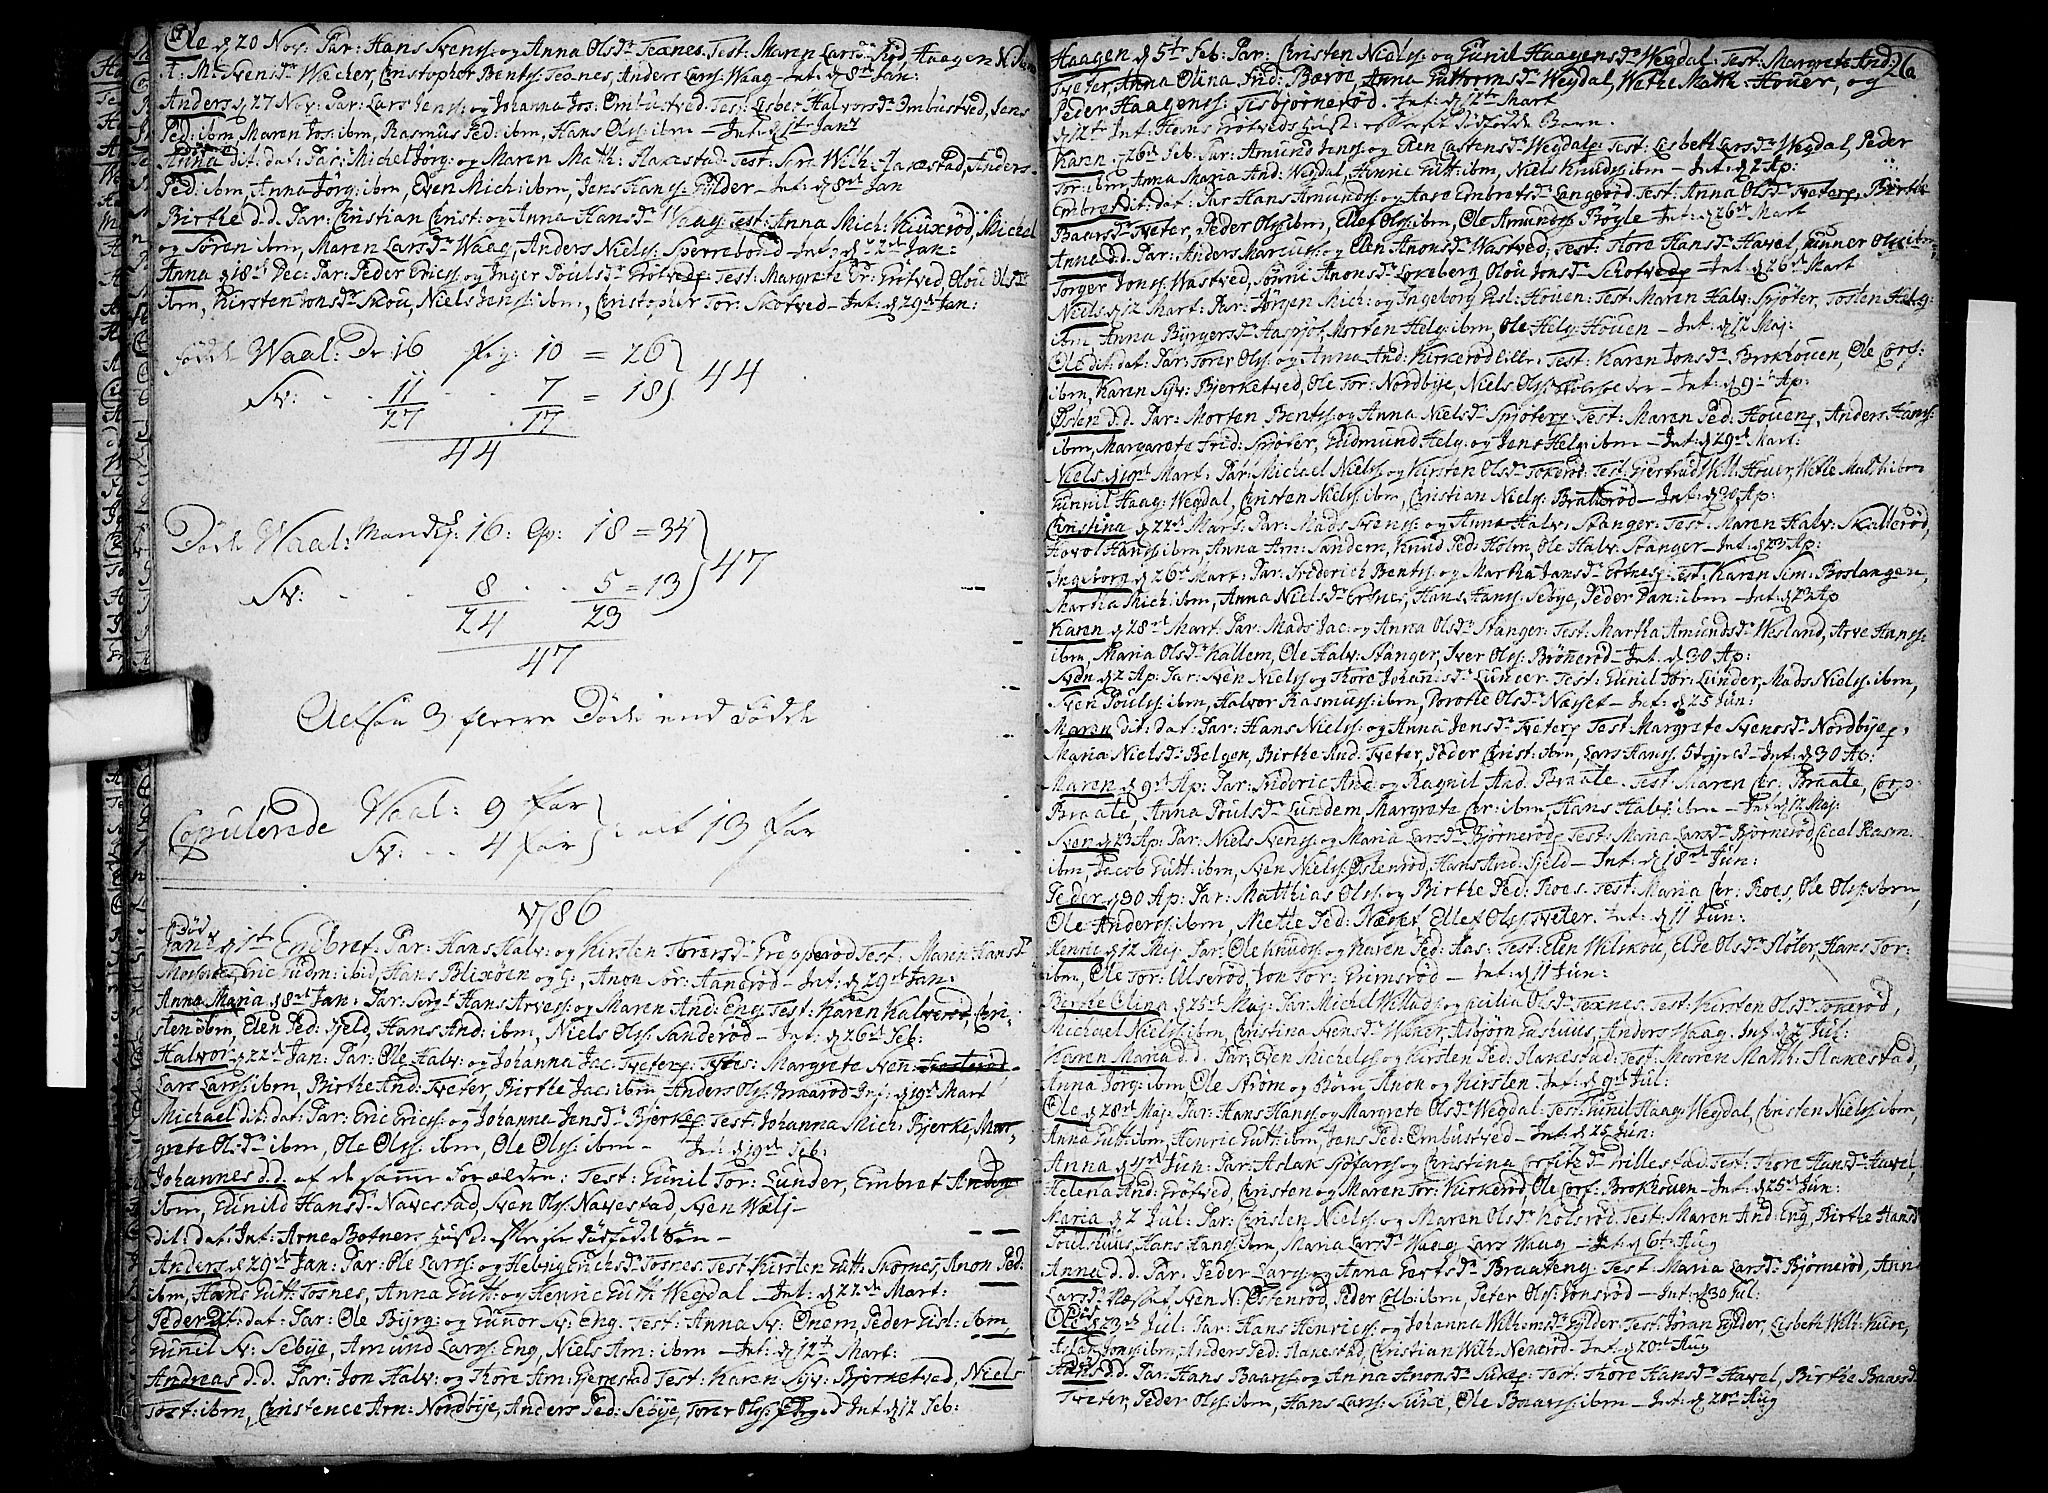 Ole d 20 Nov: Par: Hans Svens: og Anna Olsd. Texnes. Test: Maren Larsd. Rød, Haagen
A: M: Svensd. Wæcher, Christopher Bents: Texnes, Anders Lars: Waag - Int: d 8de Jan:
Anders d 27 Nov: Par: Lars Jens: og Johanna Jos: Ombustved. Test: Lisbet Halvorsd. Ombustved, Jens
Ped: ibm, Maren Jos: ibm, Rasmus Ped: ibm, Hans Ols: ibm - Int: d 1te Jan:
Anna dit: dat: Par: Michel Jørg: og Maren Math: Flakestad. Test: Wilh: Flakestad, Anders
Ped: ibm, Anna Jørg: ibm, Even Mich: ibm, Jens Hans: Gylder - Int: d 8de Jan
Birthe d.d. Par: Christian Christ: og Anna Hansd. Waag. Test: Anna Mich: Kiuxrød, Michel
og Søren ibm, Maren Larsd. Waag, Anders Niels: Sperrebond - Int: d 22de Jan:
Anna d 18de Dec: Par: Peder Erics: og Inger Poulsd. Grøtved. Test: Margrete Er: Grøtved, Olou Olsd.
ibm, Kirsten Jonsd. Skou, Niels Jens: ibm, Christopher Tor: Skotved - Int: d 29de Jan:
Fødde Waal: Dr: 16 Pig: 10 = 26 } 44
Sv: . . 11 . . 7 = 18
27 . 17
44
Døde Waal: Mandkj: 16: Qv: 18 = 34 } 47
Sv: . . 8 . . 5 = 13
24 23
47
Altsaa 3 fleere Døde end Fødde
Copulerede Waal: 9 Par } i alt 13 Par
Sv: . . 4 Par
1786
død
Jan: d 1te Endbret. Par: Hans Halv: og Kirsten Toresd. Grepperød. Test: Maren Hansd.
Eric Gudm: ibid, Hans Blixøen og Anon Tor: Aanerød - Int: d 29de Jan:
Anna Maria d 8de Jan: Par: Hans Arves: og Maren And: Eng. Test: Karen Chri-
sten ibm, Elen Ped: Fjeld, Hans And: ibm, Niels Ols: Sanderød - Int: d 26de Feb:
Halvor d 22de Jan: Par: Ole Halv: og Johanna Jac: Tveter. Test: Margrete Sven:
Lars Lars: ibm, Birthe And: Tveter, Birthe Jac: ibm, Anders Ols: Baarød - Int: d 19de Mart
Michael dit: dat: Par: Eric Erics: og Johanne Jensd. Bjerke. Test: Johanna Mich: Bjerke, Mar-
grete Olsd. ibm, Ole Ols: ibm, Ole Ols: ibm - Int: d 19de Feb:
Johannes d.d. af de samme Forældre: Test: Gunil Tor: Lunder, Embret
ibm, Gunild Hansd. Navestad, Sven Ols: Navestad, Sven
dit: dat: Int: Arne Botners Hust: dødfødde Søn -
Anders d 29de Jan: Par: Ole Lars: og Helvig Tosnes. Test: Kirsten Gutt: Skornes, Anon Ped:
ibm, Hans Gutt: Tosnes, Anna Gutt: og Henric Gutt: Wegdal - Int: d 22de Mart:
Peder dit: dat: Par: Ole Byrg: og Gunnor Sv: Eng. Test: Anna Sv: Onem, Peder Gisl: ibm,
Gunil Sv: Sebye, Amund Lars: Eng, Niels Am: ibm - Int: d 12te Mart:
Andreas d.d. Par: Jon Halv: og Thore Am: Gjerrestad. Test: Karen Syv: Bjerketved, Niels
Tost: ibm, Christence Arn: Nordbye, Anders Ped: Sebye, Torer Ols: Int d 12 Feb:
26
Haagen d 5te Feb: Par: Christen Niels: og Gunil Haagensd. Wegdal. Test: Margrete And:
Tveter, Anna Olina Frid: Bæroe, Anna Guttormsd. Wegdal, Wethe Math: Houer, og
Peder Haagens: Tisbjørnerød. Int: d 12te Mart
d 12te Int: Hans Grøtveds Hust: dødfødde Barn.
Karen d 26de Feb: Par: Amund Jens: og Elen Castensd. Wegdal. Test: Lisbeth Larsd. Wegdal, Peder
Tor: ibm, Anna Maria And: Wegdal, Henric Gutt: ibm, Niels Knuds: ibm - Int: d 2 Ap:
Embret dit: dat: Par: Hans Amunds: og Aase Embretsd. Langerød. Test: Anna Olsd. Tveter, Birthe
Baarsd. Tveter, Peder Ols: ibm, Ellef Ols: ibm, Ole Amunds: Bøyle - Int: d 26de Mart
Anne d.d. Par: Anders Marcus: og Elen Anonsd. Wastved. Test: Thore Hansd. Havel, Gunner Ols: ibm,
Torger Jons: Wastved, Sønni Anonsd. Lokeberg, Olou Jonsd. Schotved - Int: d 26de Mart
Niels d 12 Mart: Par: Jørgen Mich: og Ingeborg Gisl: Houen: Test: Maren Halv: Spjøter, Tosten Helg:
ibm, Anna Byrgersd. Haspjol, Morten Helg: ibm, Ole Helg: Houen - Int: d 12 Maj:
Ole dit: dat: Par: Torer Ols: og Anna And: Kirkerød lille: Test: Karen Jonsd. Brokhouen, Ole Corf:
ibm, Karen Syv: Bjerketved, Ole Tor: Nordbye, Niels Ols: - Int: d 9de Ap:
Østen d.d. Par: Morten Bents: og Anna Nielsd. Spjøter. Test: Maren Ped: Houen, Anders Hans:
ibm, Margarete Frid: Spjøter, Gudmund Helg: og Jens Helg: ibm - Int: d 29de Mart:
Niels d 19de Mart: Par: Michael Niels: og Kirsten Olsd. Tokerød. Test: Giertrud Will: Houer, Wethe Math: ibm
Gunnil Haag: Wegdal, Christen Niels: ibm, Christian Niels: Bratterød - Int: d 30 Ap:
Christina d 22de Mart: Par: Mads Svens: og Anna Halv: Stanger. Test: Maren Halv: Skallerød,
Hovol Hans: ibm, Anna Am: Sandem, Knud Ped: Holm, Ole Halv: Stanger - Int: d 23 Ap:
Ingeborg d 26de Mart: Par: Friderich Bents: og Martha Jansd. Ertnes. Test: Karen Sim: Boslangen,
Martha Mich: ibm, Anna Nielsd. Ertnes, Hans Hans: Sebye, Peder Dan: ibm - Int: d 23 Ap
Karen d 28de Mart: Par: Mads Jac: og Anna Olsd. Stanger: Test: Martha Amundsd. Wesland, Arve Hans:
ibm, Maria Olsd. Kallem, Ole Halv: Stanger, Iver Ols: Brønerød - Int: d 30 Ap:
Sven d 2 Ap: Par: Sven Niels: og Thore Johansd. Lunder. Test: Gunil Tor: Lunder, Mads Niels: ibm,
Sven Pouls: ibm, Halvor Rasmus: ibm, Dorothe Olsd. Næsset - Int: d 25 Jun:
Maren dit: dat: Par: Hans Niels: og Anna Jensd. Tveter. Test: Margrete Svensd. Nordbye,
Maria Nielsd. Belgen, Birthe Aud: Tveter, Peder Christ: ibm, Lars Hans: - Int: d 30 Ap:
Maren d 9de Ap: Par: Frideric And: og Ragnil And: Braate. Test: Maren Chr: Braate, Corf:
Braate, Anna Poulsd. Lundem, Margrete Chr: ibm, Hans Halv: ibm - Int: d 12 Maj:
Sven d 23 Ap: Par: Niels Svens: og Maria Larsd. Bjørnerød. Test: Maria Larsd. Bjørnerød, Cicel Rasm:
ibm, Jacob Gutt: ibm, Sven Niels: Østenrød, Hans And: Fjeld - Int: d 18de Jun:
Peder d 30 Ap: Par: Matthias Ols: og Birthe Ped: Roes. Test: Maria Chr: Roes, Ole Ols: ibm,
Ole Anders: ibm, Mette Ped: Næset, Ellef Ols: Tveter. Int: d 11 Jun:
Henric d 12 Maj: Par: Ole Knuds: og Karen Ped: Aas: Test: Elen Wilskou, Elde Olsd. Fløter, Hans Tor:
ibm, Ole Tor: Ulserød, Jon Tor: Grimsrød - Int: d 11 Jun:
Birthe Olina d 25de Maj: Par: Michel Willads: og Cicilia Olsd. Texnes. Test: Kirsten Olsd. Tokerød,
Michael Niels: ibm, Christina Svensd. Wæker, Asbjørn Gashuus, Anders Waag. Int: d 2 Jul:
Karen Maria d.d. Par: Even Michels: og Kirsten Ped: Flakestad: Test: Maren Math: Flakestad,
Anna Jørg: ibm, Ole Strøm og Børn, Anon og Kirsten - Int: d 9de Jul:
Ole d 28de Maj: Par: Hans Hans: og Margrete Olsd. Wegdal. Test: Gunil Haag: Wegdal, Christen Niels: ibm,
Anna Gutt: ibm, Henric Gutt: ibm, Jens Ped: Ombustved - Int: d 25 Jun:
Anna d 4de Jun: Par: Aslak Sjofars: og Christina Corfitzd. Trillestad. Test: Thore Hansd. Havel,
Helena And: Grøtved, Christen og Maren Tor: Kirkerød, Ole Corf: Brokhouen - Int: d 25de Jun:
Maria d 2 Jul: Par: Christen Niels: og Maren Olsd. Kolsrød. Test: Maren And: Eng, Birthe Hansd.
Poulshuus, Hans Hans: ibm, Maria Larsd. Waag, Lars Waag - Int: d 6te Aug
Anna d.d. Par: Peder Lars: og Anna Gertsd. Braateng. Test: Maria Larsd: Bjørnerød, Anna
Larsd. Næsset, Sven N: Østenrød, Peder Colb: ibm, Peter Ols: Jonsrød - Int: d 30 Jul:
død
Ole d 23de Jul: Par: Hans Henrics: og Johanna Wilhemsd. Gylder. Test: Jøran Gylder, Lisbeth Will: Kure,
Aslak Jons: ibm, Anders Ped: Flakestad, Christian Wilh: Nenerød - Int: d 20de Aug
Anne d.d. Par: Hans Baars: og Anna Anonsd. Surke. Test: Thore Hansd. Havel, Birthe Baarsd.
Tveter, Peder Ols: ibm, Hans Lars: Surke, Ole Baars: ibm - Int: d 20de Aug